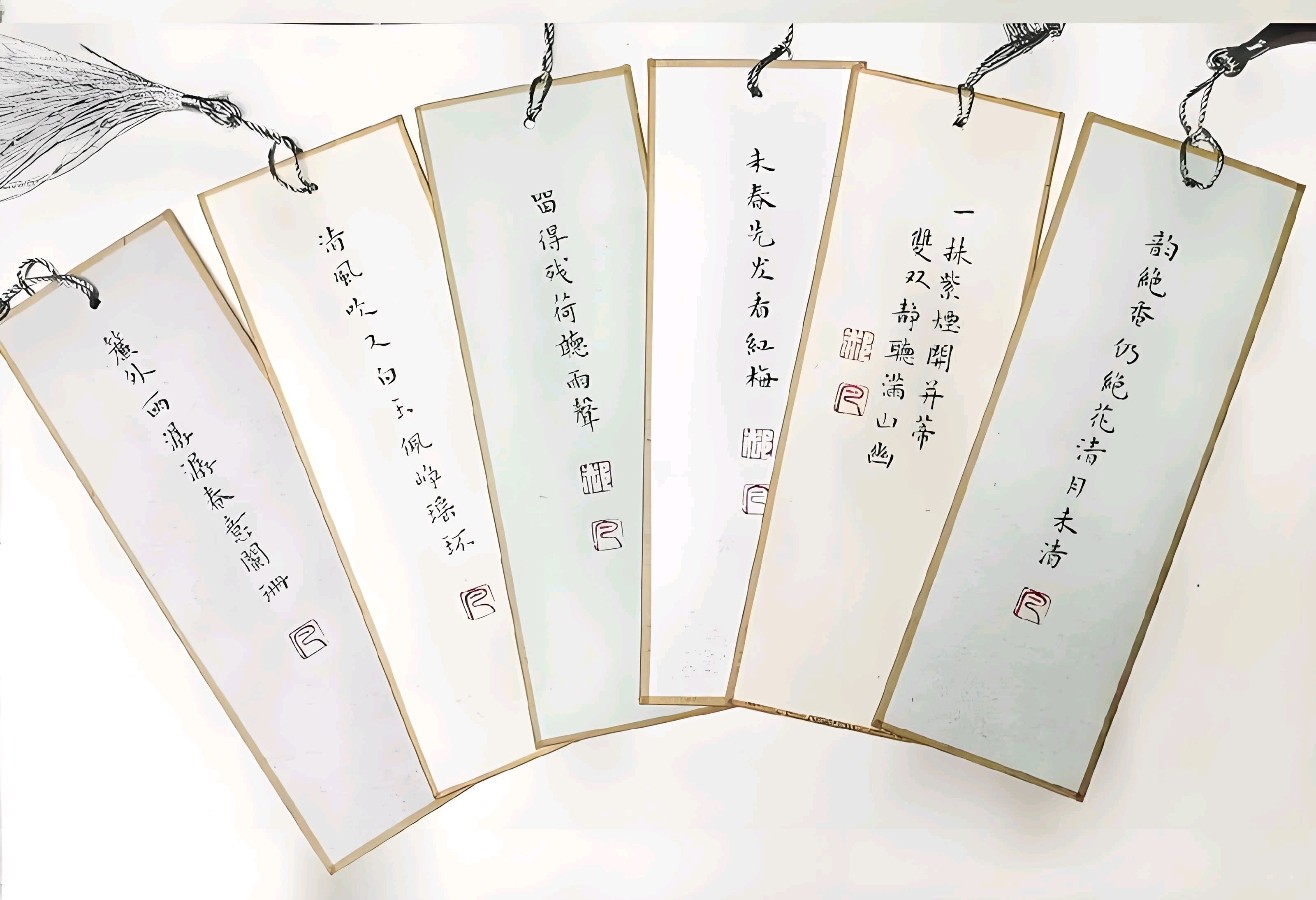 簾外雨潺潺春意闌珊
清風吹又白玉佩峥瑶环
留得残荷聽雨聲
未春先发看紅梅
一抹紫煙開并蒂
雙双靜聽滿山幽
韵絶香仍絶花清月未清